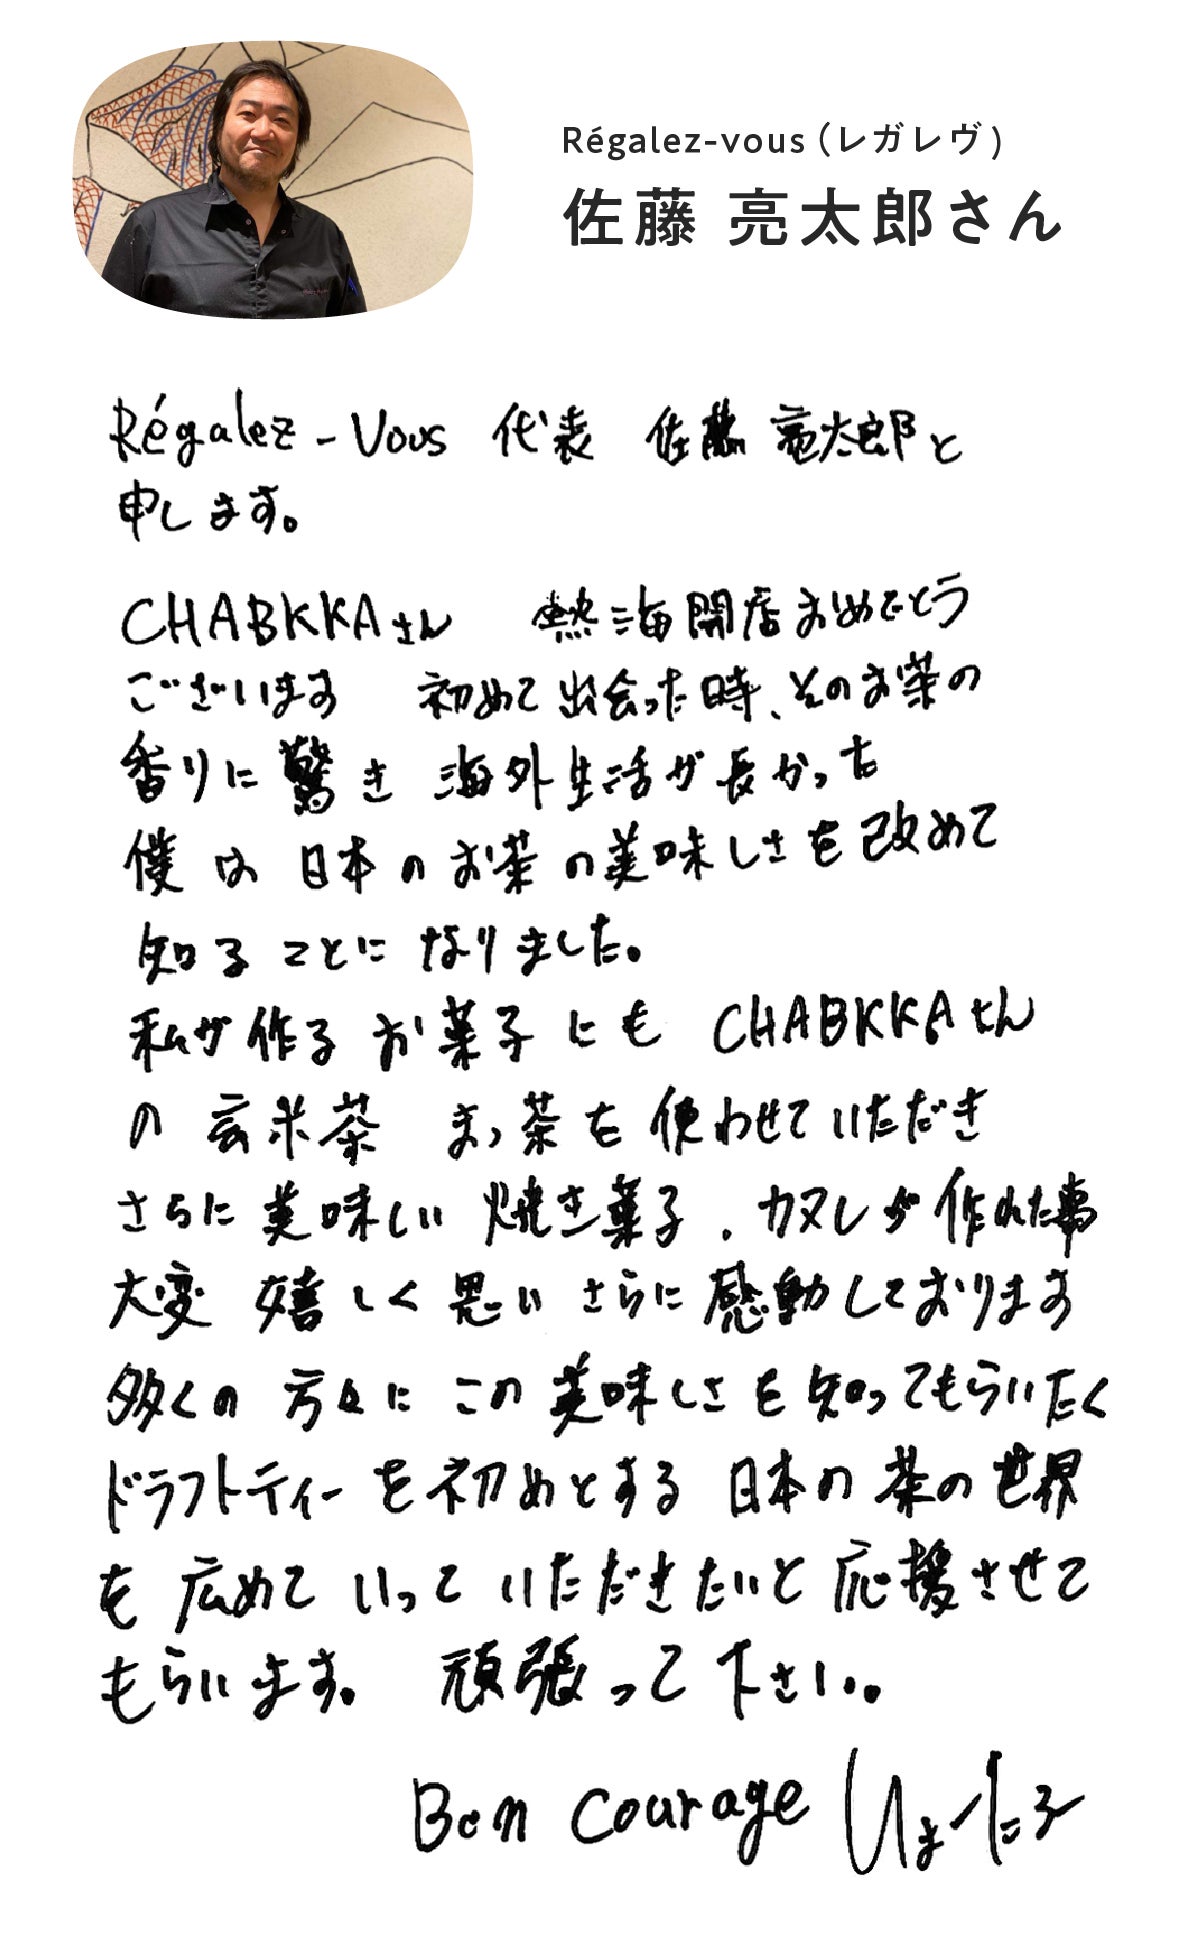 Régalez-vous（レガレヴ）
佐藤 亮太郎さん
Régalez-Vous 代表 佐藤 亮太郎と
申します。
CHABKKAさん 熱海開店おめでとう
ございます 初めて出会った時、そのお茶の
香りに驚き 海外生活が長かった
僕は 日本のお茶の美味しさを改めて
知ることになりました。
私が作るお菓子にも CHABKKAさん
の玄米茶 まっ茶を使わせていただき
さらに美味しい焼き菓子、カヌレが作れた事
大変 嬉しく思い さらに感動しております
多くの方々にこの美味しさを知ってもらいたく
ドラフトティーを初めとする 日本の茶の世界
を広めていっていただきたいと応援させて
もらいます。 頑張って下さい。
Bon Courage